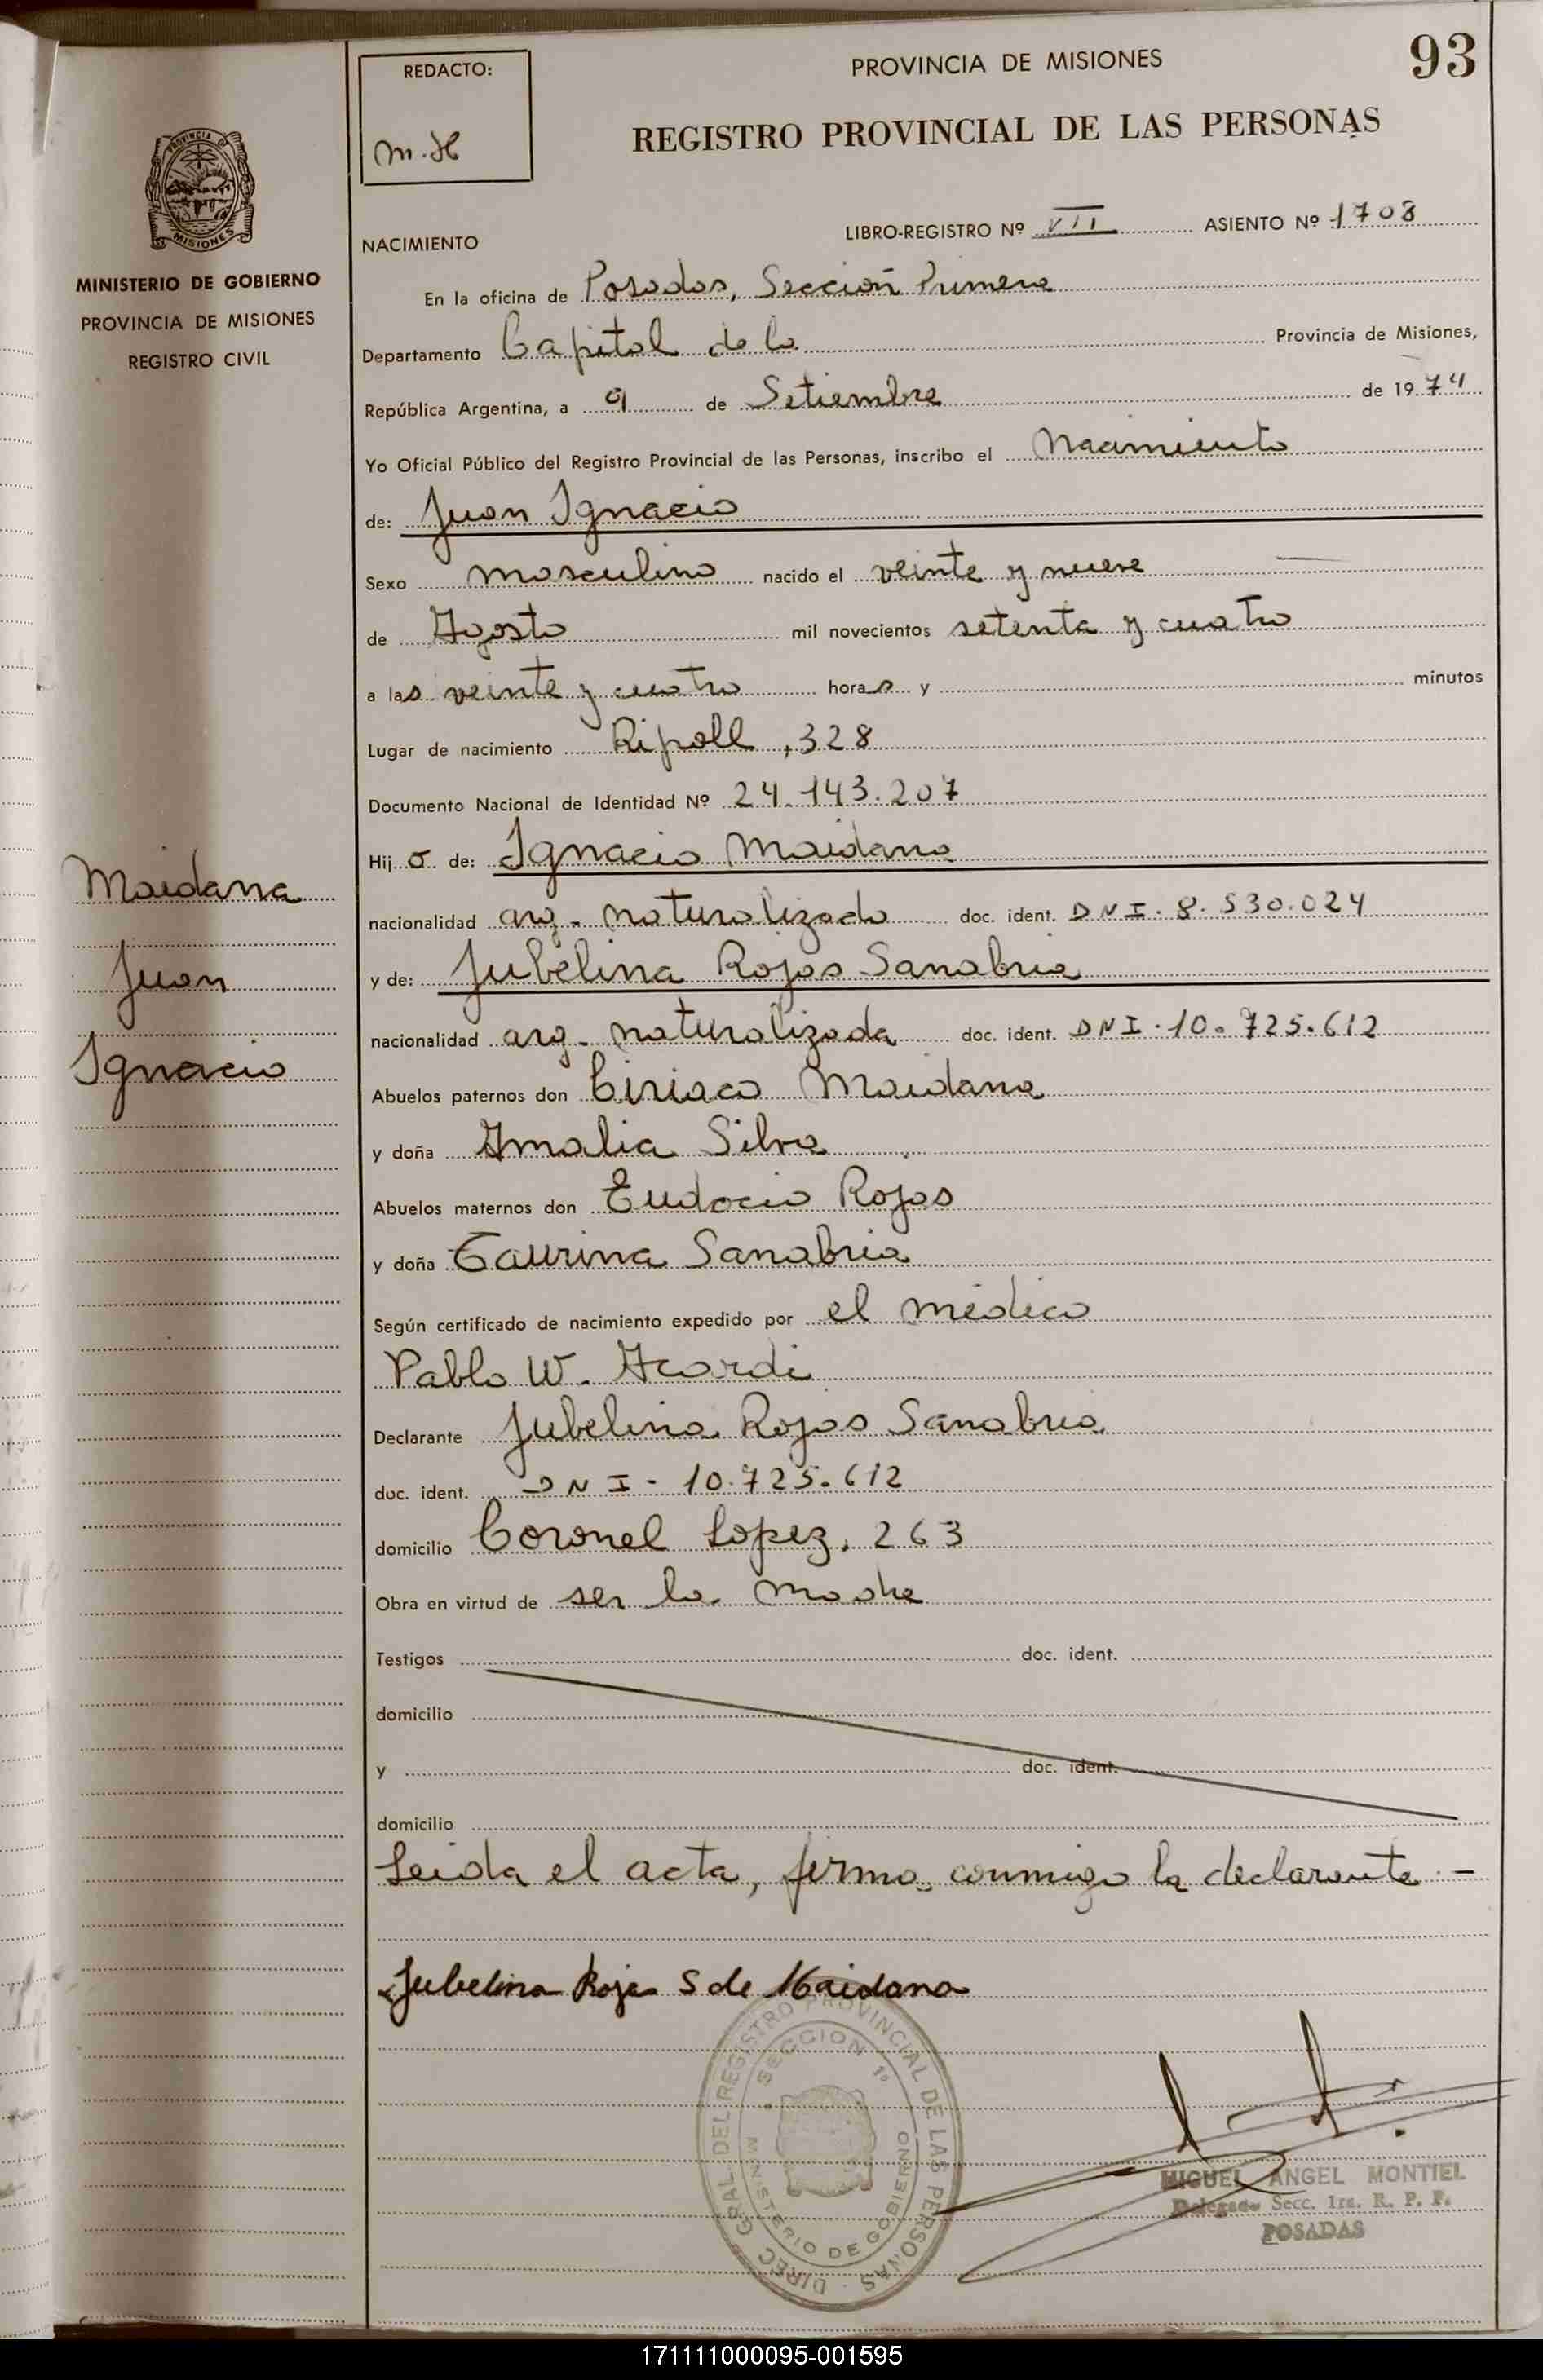 REDACTO:
m.H
PROVINCIA DE MISIONES
93
REGISTRO PROVINCIAL DE LAS PERSONAS
PROVINCIA
MISIONES
MINISTERIO DE GOBIERNO
PROVINCIA DE MISIONES
REGISTRO CIVIL
LIBRO-REGISTRO Nº VII ASIENTO Nº 1708
NACIMIENTO
En la oficina de Posadas, Sección Primera
Departamento Capital de la Provincia de Misiones,
República Argentina, a 9 de Setiembre de 1974
Yo Oficial Público del Registro Provincial de las Personas, inscribo el Nacimiento
de: Juan Ignacio
Sexo masculino nacido el veinte y nueve
de Agosto mil novecientos setenta y cuatro
a las veinte y cuatro horas y minutos
Lugar de nacimiento Ripoll, 328
Documento Nacional de Identidad Nº 24.143.207
Hijo de: Ignacio Maidana
nacionalidad arg. naturalizado doc. ident. DNI. 8.530.024
y de: Jubelina Rojas Sanabria
nacionalidad arg. naturalizada doc. ident. DNI. 10.725.612
Abuelos paternos don Ciriaco Maidana
y doña Amalia Silva
Abuelos maternos don Eudocio Rojas
y doña Taurina Sanabria
Según certificado de nacimiento expedido por el médico
Pablo W. Acardi
Declarante Jubelina Rojas Sanabria
doc. ident. DNI - 10.725.612
domicilio Coronel Lopez, 263
Obra en virtud de ser la madre
Testigos doc. ident.
domicilio
y doc. ident.
domicilio
Leida el acta, firma conmigo la declarante.-
Jubelina Rojas S de Maidana
Maidana
Juan
Ignacio
DIREC. GRAL. DEL REGISTRO PROVINCIAL DE LAS PERSONAS
SECCION 1ª
MINISTERIO DE GOBIERNO
MIGUEL ANGEL MONTIEL
Delegado Secc. 1ra. R. P. P.
POSADAS
171111000095-001595